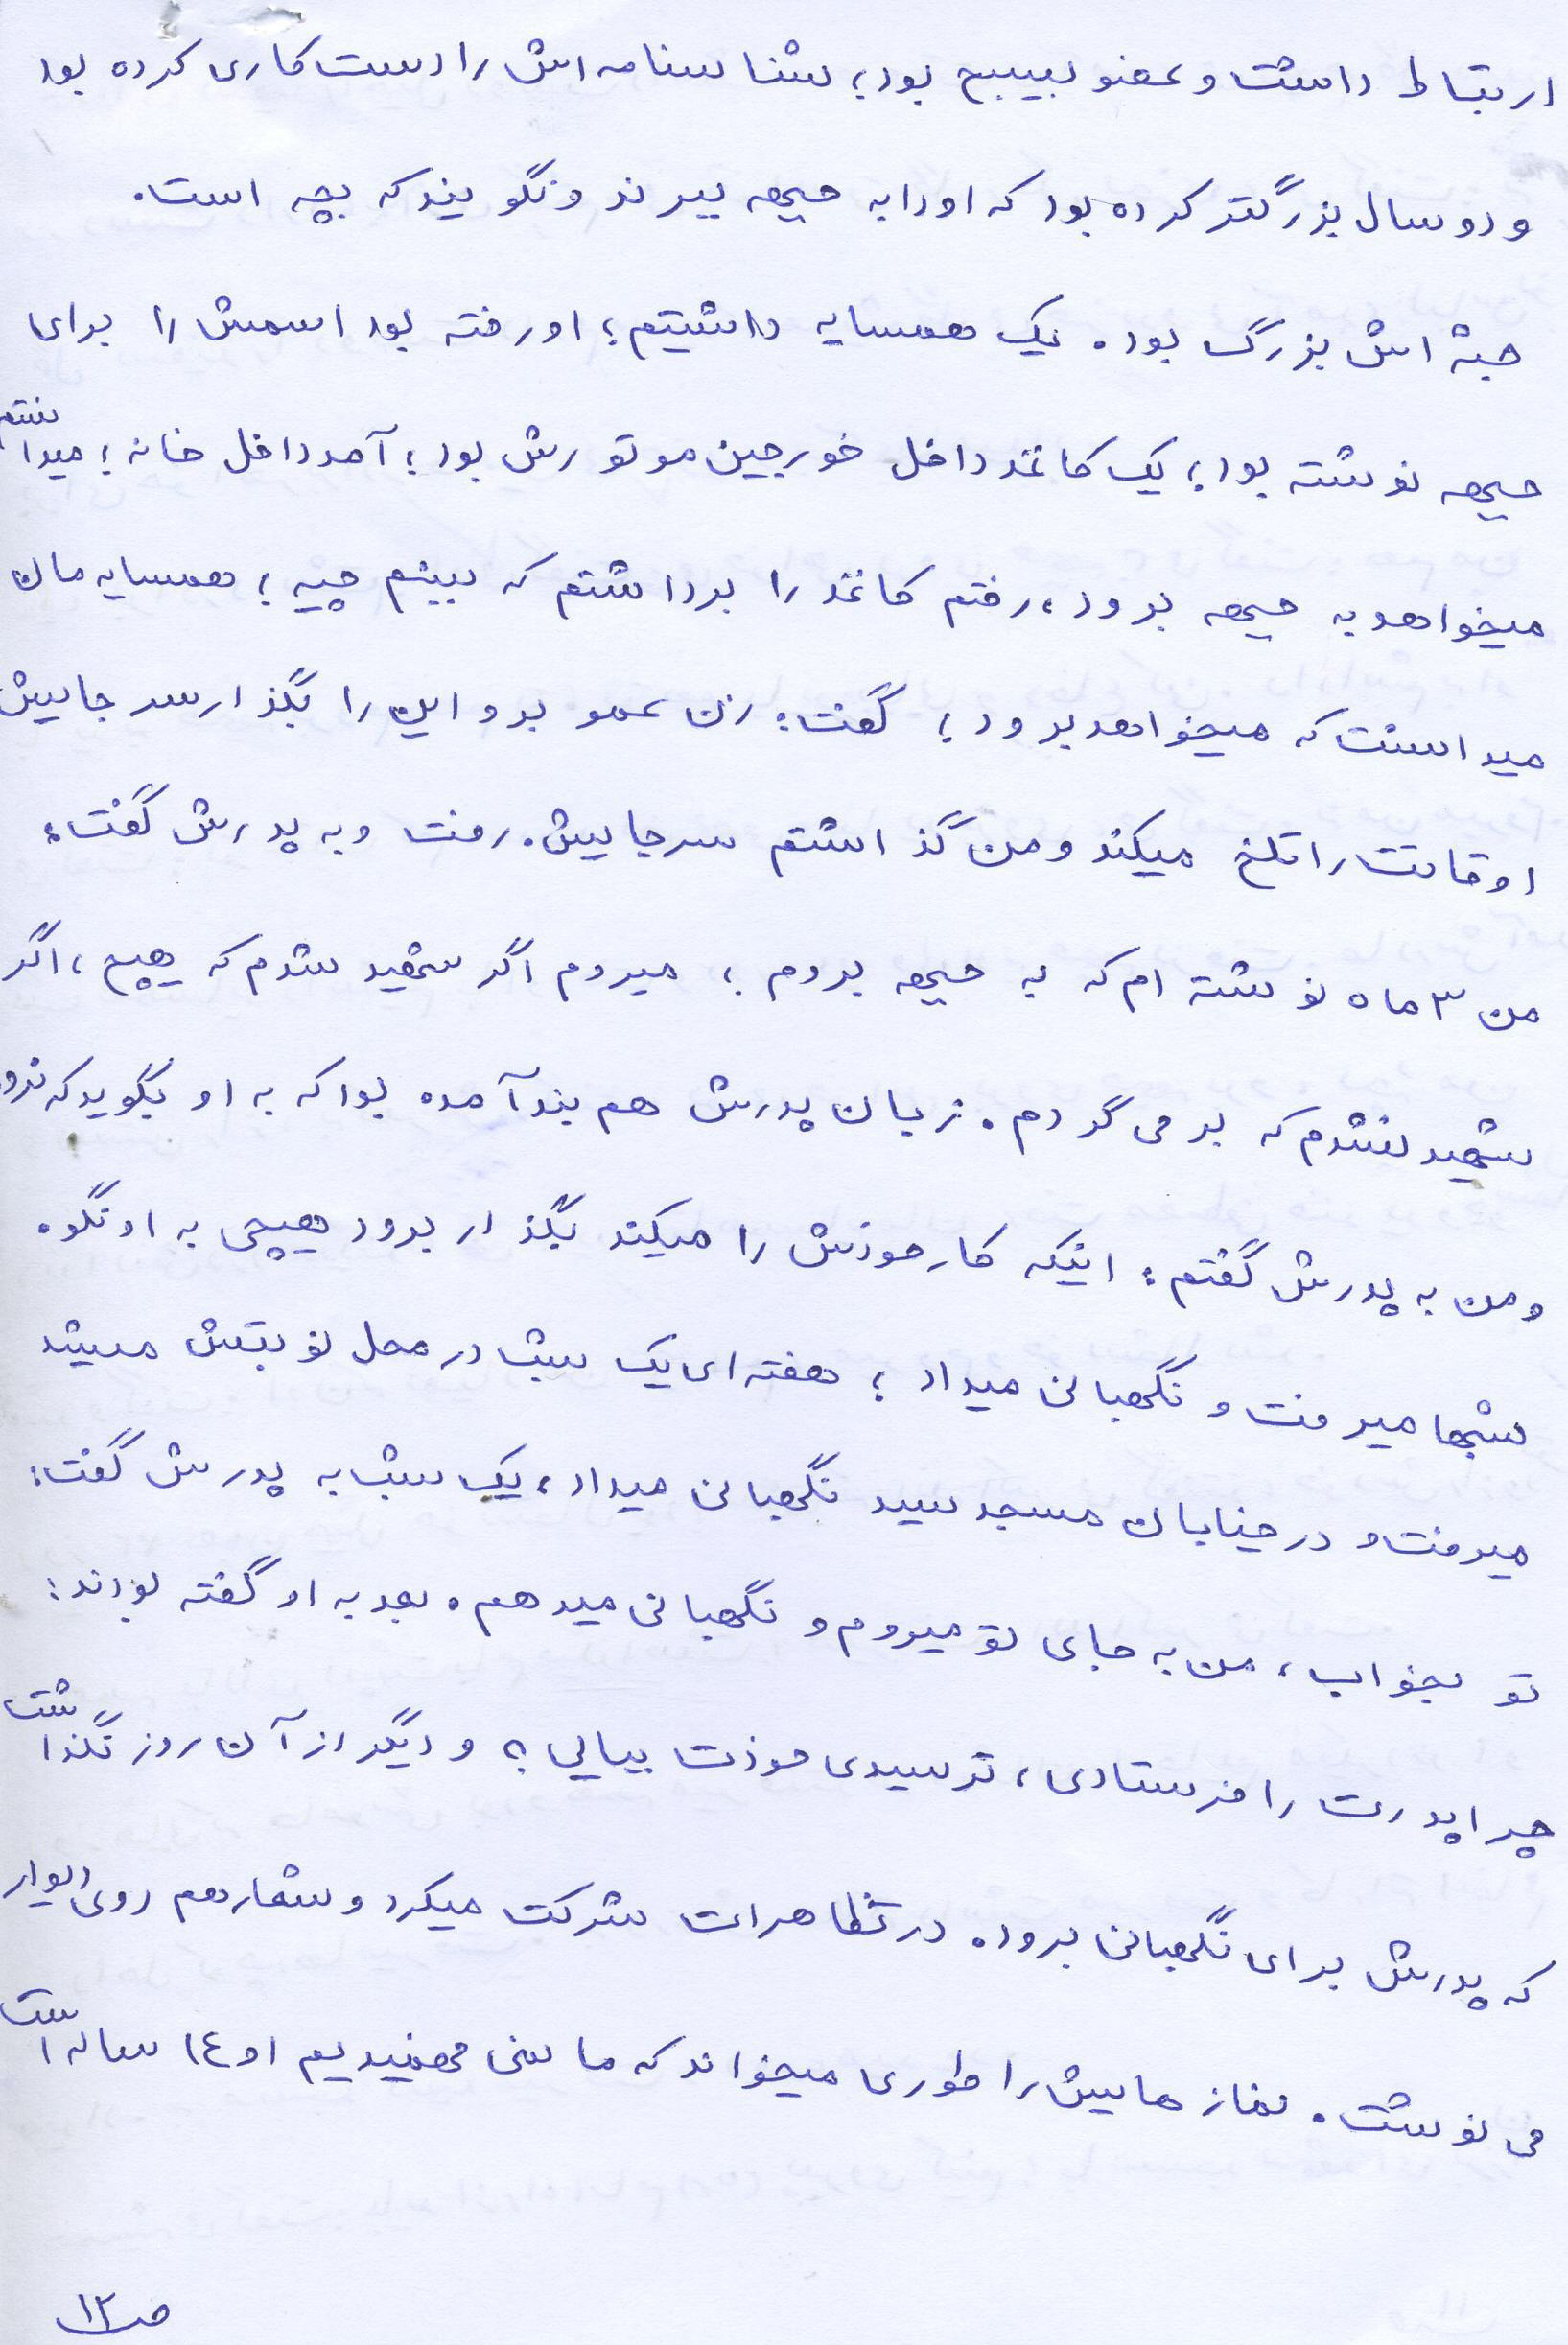 ارتباط داشت و عضو بسیج بود؛ شناسنامه اش را دست کاری کرده بود
و دو سال بزرگتر کرده بود که او را به جبهه ببرند و نگویند که بچه است.
جثه اش بزرگ بود. یک همسایه داشتیم؛ او رفته بود اسمش را برای
جبهه نوشته بود؛ یک کاغذ داخل خورجین موتورش بود؛ آمد داخل خانه؛ میدانستم
میخواهد به جبهه برود، رفتم کاغذ را برداشتم که ببینم چیه؛ همسایه مان
میدانست که میخواهد برود؛ گفت: زن عمو برو این را بگذار سر جاییش
اوقاتت را تلخ میکند و من گذاشتم سر جاییش. رفت و به پدرش گفت:
من ۳ ماه نوشته ام که به جبهه بروم؛ میروم اگر شهید شدم که هیچ، اگر
شهید نشدم که بر می گردم. زبان پدرش هم بند آمده بود که به او بگوید که نرو
و من به پدرش گفتم: اینکه کار خودش را میکند بگذار برود هیچی به او نگو.
شبها میرفت و نگهبانی میداد؛ هفته ای یک شب در محل نوبتش میشد
میرفت و در خیابان مسجد سید نگهبانی میداد، یک شب به پدرش گفت:
تو بخواب، من به جای تو میروم و نگهبانی میدهم. بعد به او گفته بودند:
چرا پدرت را فرستادی، ترسیدی خودت بیایی؟ و دیگر از آن روز نگذاشت
که پدرش برای نگهبانی برود. در تظاهرات شرکت میکرد و شعار هم روی دیوار
می نوشت. نماز هاییش را طوری میخواند که ما نمی فهمیدیم او ١٤ ساله است
ص١٢